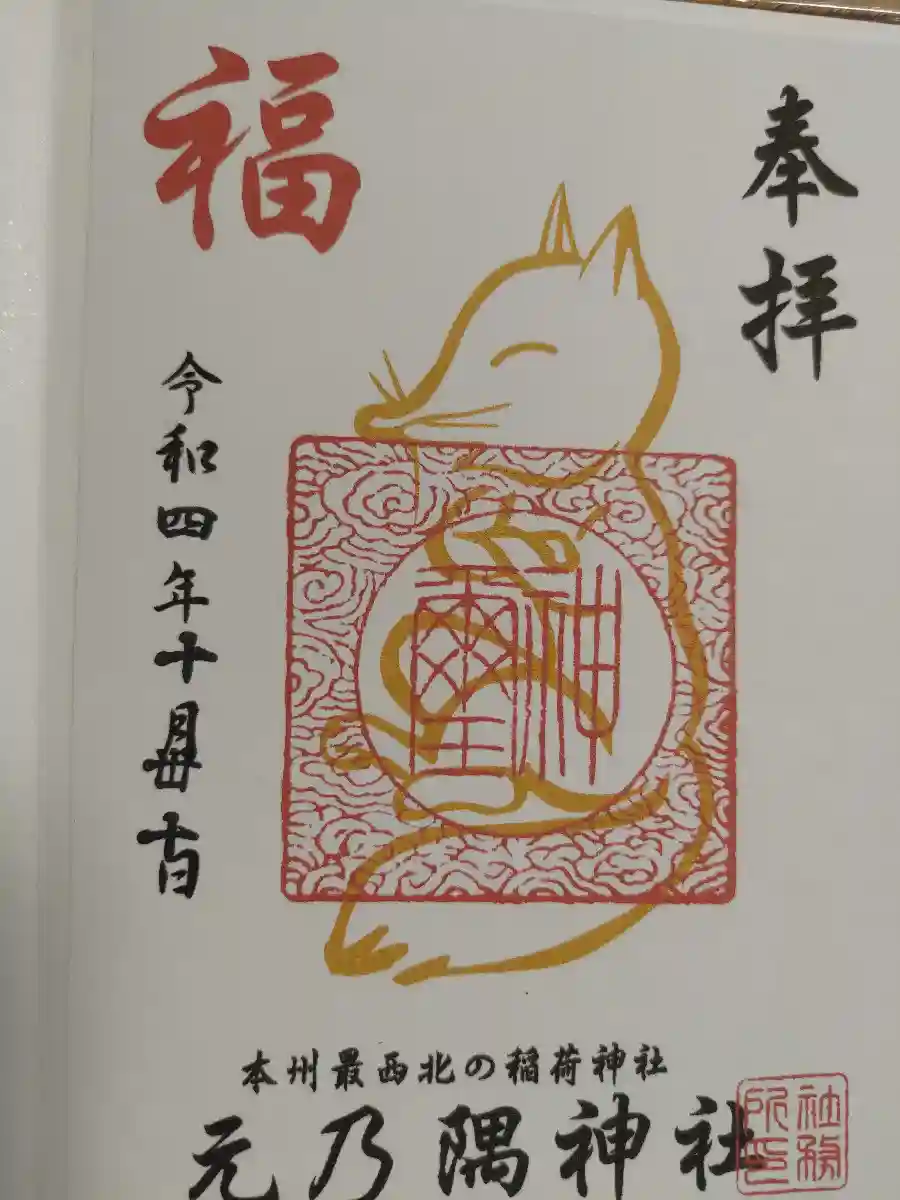 奉拝
福
令和四年十月日
神璽
本州最西北の稲荷神社
元乃隅神社
社務
所印